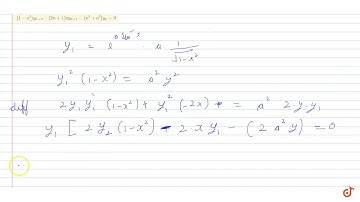 (1 - x²)yₙ₊₂ - (2n + 1)xyₙ₊₁ - (n² + a²)yₙ = 0
y₁ = e^(a sin⁻¹x) · a 1/√(1-x²)
y₁² (1-x²) = a² y²
diff 2y₁ y₂ (1-x²) + y₁² (-2x) = a² 2·y·y₁
y₁ [ 2y₂ (1-x²) - 2·x·y₁ - ( 2a²y ) = 0
doubtnut